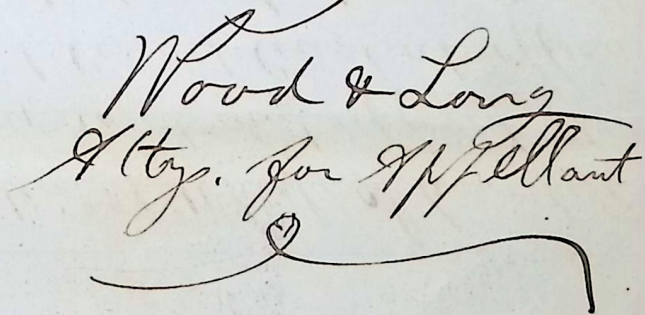 Wood & Long
Attys. for Appellant